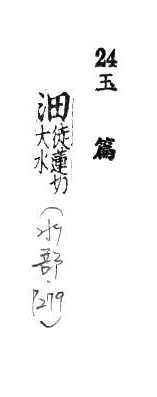 24玉篇
沺徒蓮切大水(水部·P279)